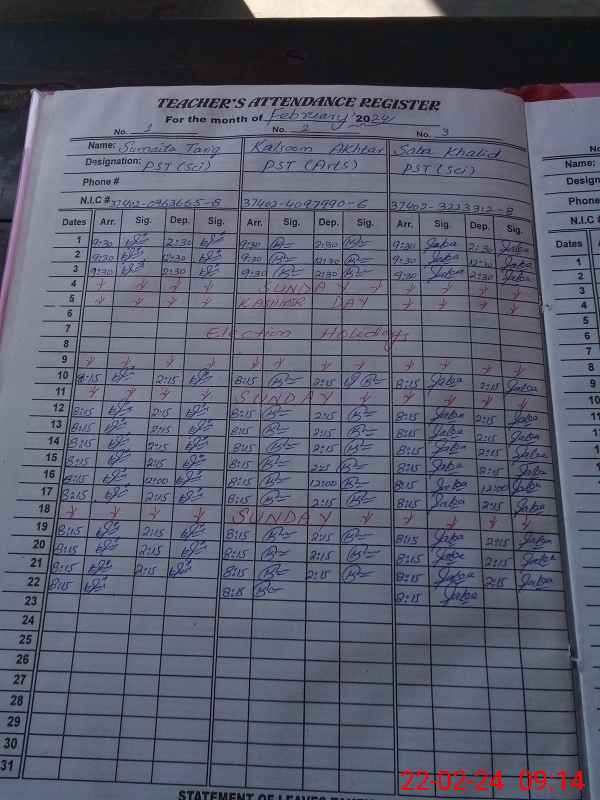 TEACHER'S ATTENDANCE REGISTER
For the month of February 2024
No. 1 No. 2 No. 3
Name: Sumaita Tariq Kalsoom Akhtar Saba Khalid
Designation: PST (Sci) PST (Arts) PST (Sci)
Phone #
N.I.C # 37402-0963665-8 37402-4097990-6 37402-3223912-8
Dates Arr. Sig. Dep. Sig. Arr. Sig. Dep. Sig. Arr. Sig. Dep. Sig.
1 9:30 2:30 9:30 2:30 9:30 Saba 2:30 Saba
2 9:30 12:30 9:30 12:30 9:30 Saba 12:30 Saba
3 9:30 2:30 9:30 2:30 9:30 Saba 2:30 Saba
4 SUNDAY
5 KASHMIR DAY
6
7 Election Holidays
8
9
10 8:15 2:15 8:15 2:15 8:15 Saba 2:15 Saba
11 SUNDAY
12 8:15 2:15 8:15 2:15 8:15 Saba 2:15 Saba
13 8:15 2:15 8:15 2:15 8:15 Saba 2:15 Saba
14 8:15 2:15 8:15 2:15 8:15 Saba 2:15 Saba
15 8:15 2:15 8:15 2:15 8:15 Saba 2:15 Saba
16 8:15 12:00 8:15 12:00 8:15 Saba 12:00 Saba
17 8:15 2:15 8:15 2:15 8:15 Saba 2:15 Saba
18 SUNDAY
19 8:15 2:15 8:15 2:15 8:15 Saba 2:15 Saba
20 8:15 2:15 8:15 2:15 8:15 Saba 2:15 Saba
21 8:15 2:15 8:15 2:15 8:15 Saba 2:15 Saba
22 8:15 8:15 8:15 Saba
23
24
25
26
27
28
29
30
31
STATEMENT OF LEAVES TAKEN
No.
Name:
Design
Phone
N.I.C #
Dates A
1
2
3
4
5
6
7
8
9
10
11
12
22-02-24 09:14